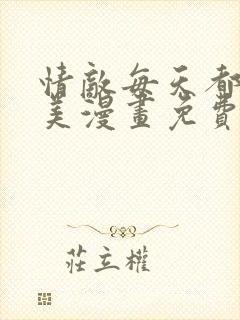 情敵每天都
美漫畫免費
莊立權